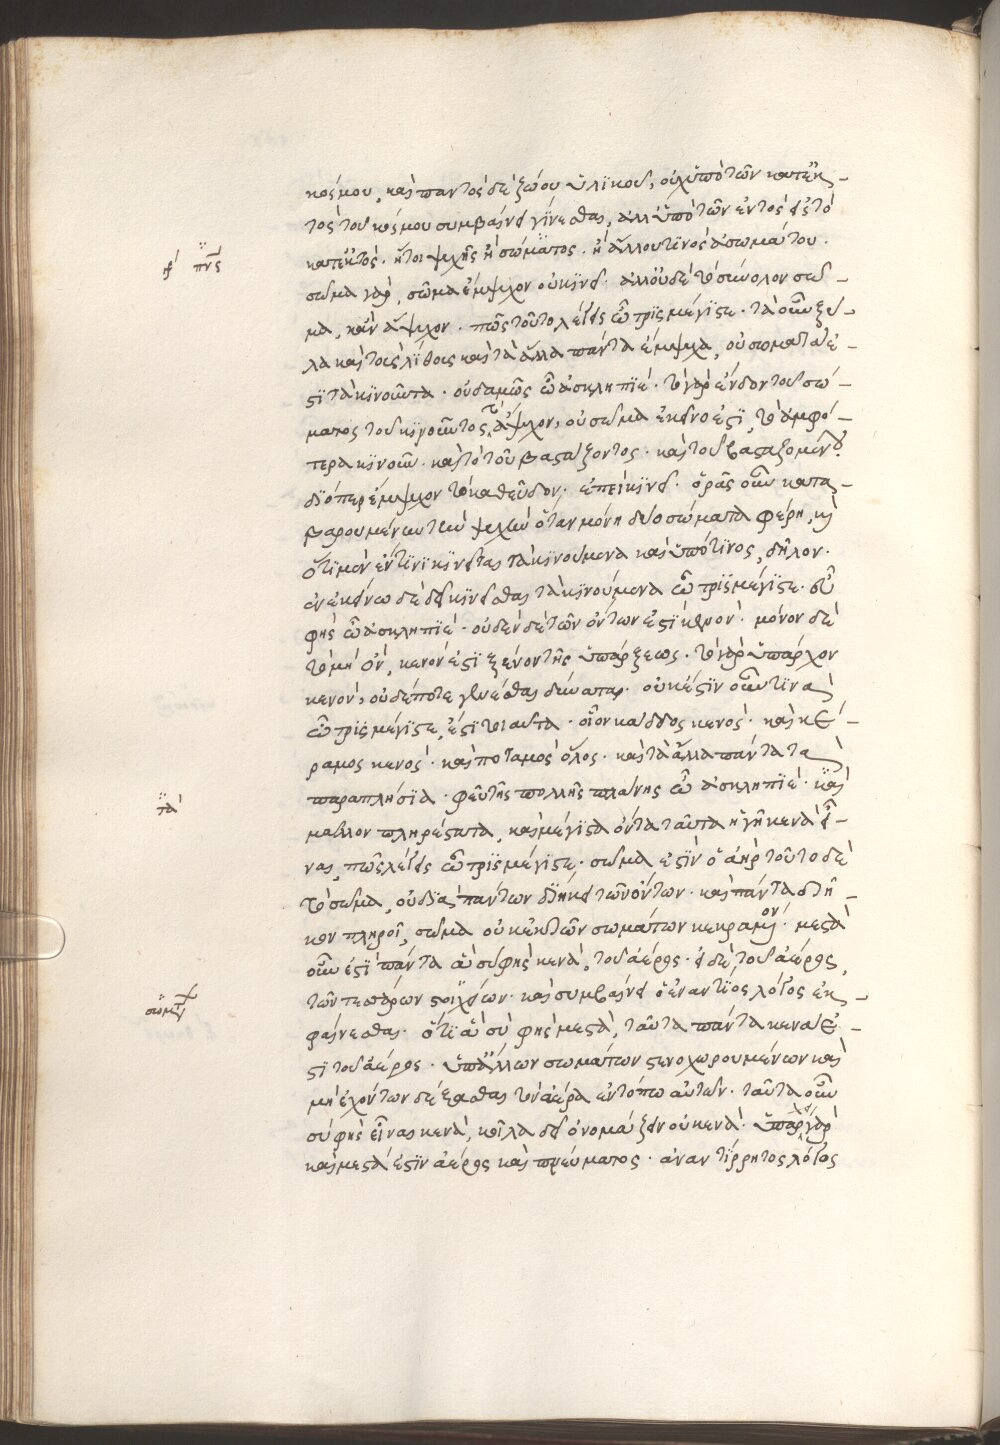 κόσμου, καὶ παντὸς δὲ ζώου ὑλικοῦ, οὐχ ὑπὸ τῶν κατεκ-
τὸς τοῦ κόσμου συμβαίνει γίνεσθαι, ἀλλ' ὑπὸ τῶν ἐντὸς εἰς τὸ
κατεκτὸς. ἤτοι ψυχῆς ἢ σώματος. ἢ ἄλλου τινὸς ἀσωμάτου.
σῶμα γὰρ, σῶμα ἔμψυχον οὐ κινεῖ. ἀλλ' οὐδὲ τὸ σύνολον σῶ-
μα, κἂν ἄψυχον. πῶς τοῦτο λέγεις ὦ τρισμέγιστε. τὰ οὖν ξύ-
λα καὶ τοὺς λίθους καὶ τὰ ἄλλα πάντα ἔμψυχα, οὐ σώματά ἐ-
στι τὰ κινοῦντα. οὐδαμῶς ὦ ἀσκληπιέ. τὸ γὰρ ἔνδον τοῦ σώ-
ματος τοῦ κινοῦντος τὸ ἄψυχον, οὐ σῶμα ἐκεῖνό ἐστι, τὸ ἀμφό-
τερα κινοῦν. καὶ τὸ τοῦ βαστάζοντος. καὶ τοῦ βασταζομένου.
διόπερ ἔμψυχον τὸ καθεῦδον. ἐπεὶ κινεῖ. ὁρᾷς οὖν κατα-
βαρουμένην τὴν ψυχὴν ὅταν μόνη δύο σώματα φέρῃ, καὶ
ὅτι μὲν ἔν τινι κινεῖται τὰ κινούμενα καὶ ὑπό τινος, δῆλον.
ἐν ἐκείνω δὲ δεῖ κινεῖσθαι τὰ κινούμενα ὦ τρισμέγιστε. εὖ
φῂς ὦ ἀσκληπιέ. οὐδὲν δὲ τῶν ὄντων ἐστὶ κενόν. μόνον δὲ
τὸ μὴ ὂν, κενόν ἐστι ξένον τῆς ὑπάρξεως. τὸ γὰρ ὑπάρχον
κενὸν, οὐδέποτε γενέσθαι δύναται. οὐκ ἔστιν οὖν τινὰ
ὦ τρισμέγιστε, ἐστὶ τοιαῦτα. οἷον κάδδος κενὸς. καὶ κέ-
ραμος κενὸς. καὶ ποταμὸς ὅλος. καὶ τὰ ἄλλα πάντα τὰ
παραπλήσια. φεῦ τῆς πολλῆς πλάνης ὦ ἀσκληπιέ. καὶ
μᾶλλον πληρέστατα, καὶ μέγιστα ὄντα ταῦτα ἡγῇ κενὰ εἶ-
ναι, πῶς λέγεις ὦ τρισμέγιστε. σῶμα ἐστὶν ὁ ἀὴρ τοῦτο δὲ
τὸ σῶμα, οὐ διὰ πάντων διήκει τῶν ὄντων. καὶ πάντα διῆ-
κον πληροῖ, σῶμα οὐκ ἐκ τῶν σωμάτων κεκραμένον. μεστὰ
οὖν ἐστὶ πάντα ἃ σὺ φῂς κενὰ, τοῦ ἀέρος. εἰ δὲ, τοῦ ἀέρος,
τῶν τεσσάρων στοιχείων. καὶ συμβαίνει ὁ ἐναντίος λόγος ἐκ-
φαίνεσθαι. ὅτι ἃ σὺ φῂς μεστὰ, ταῦτα πάντα κενά ἐ-
στι τοῦ ἀέρος. ὑπ' ἄλλων σωμάτων στενοχωρουμένων καὶ
μὴ ἐχόντων δέξασθαι τὸν ἀέρα ἐν τόπω αὐτῶν. ταῦτα οὖν
σὺ φῂς εἶναι κενὰ, κοῖλα δεῖ ὀνομάζειν οὐ κενὰ. ὑπάρχει γὰρ
καὶ μεστά ἐστιν ἀέρος καὶ πνεύματος. ἀναντίρρητος λόγος
τὰ
σωμάτων